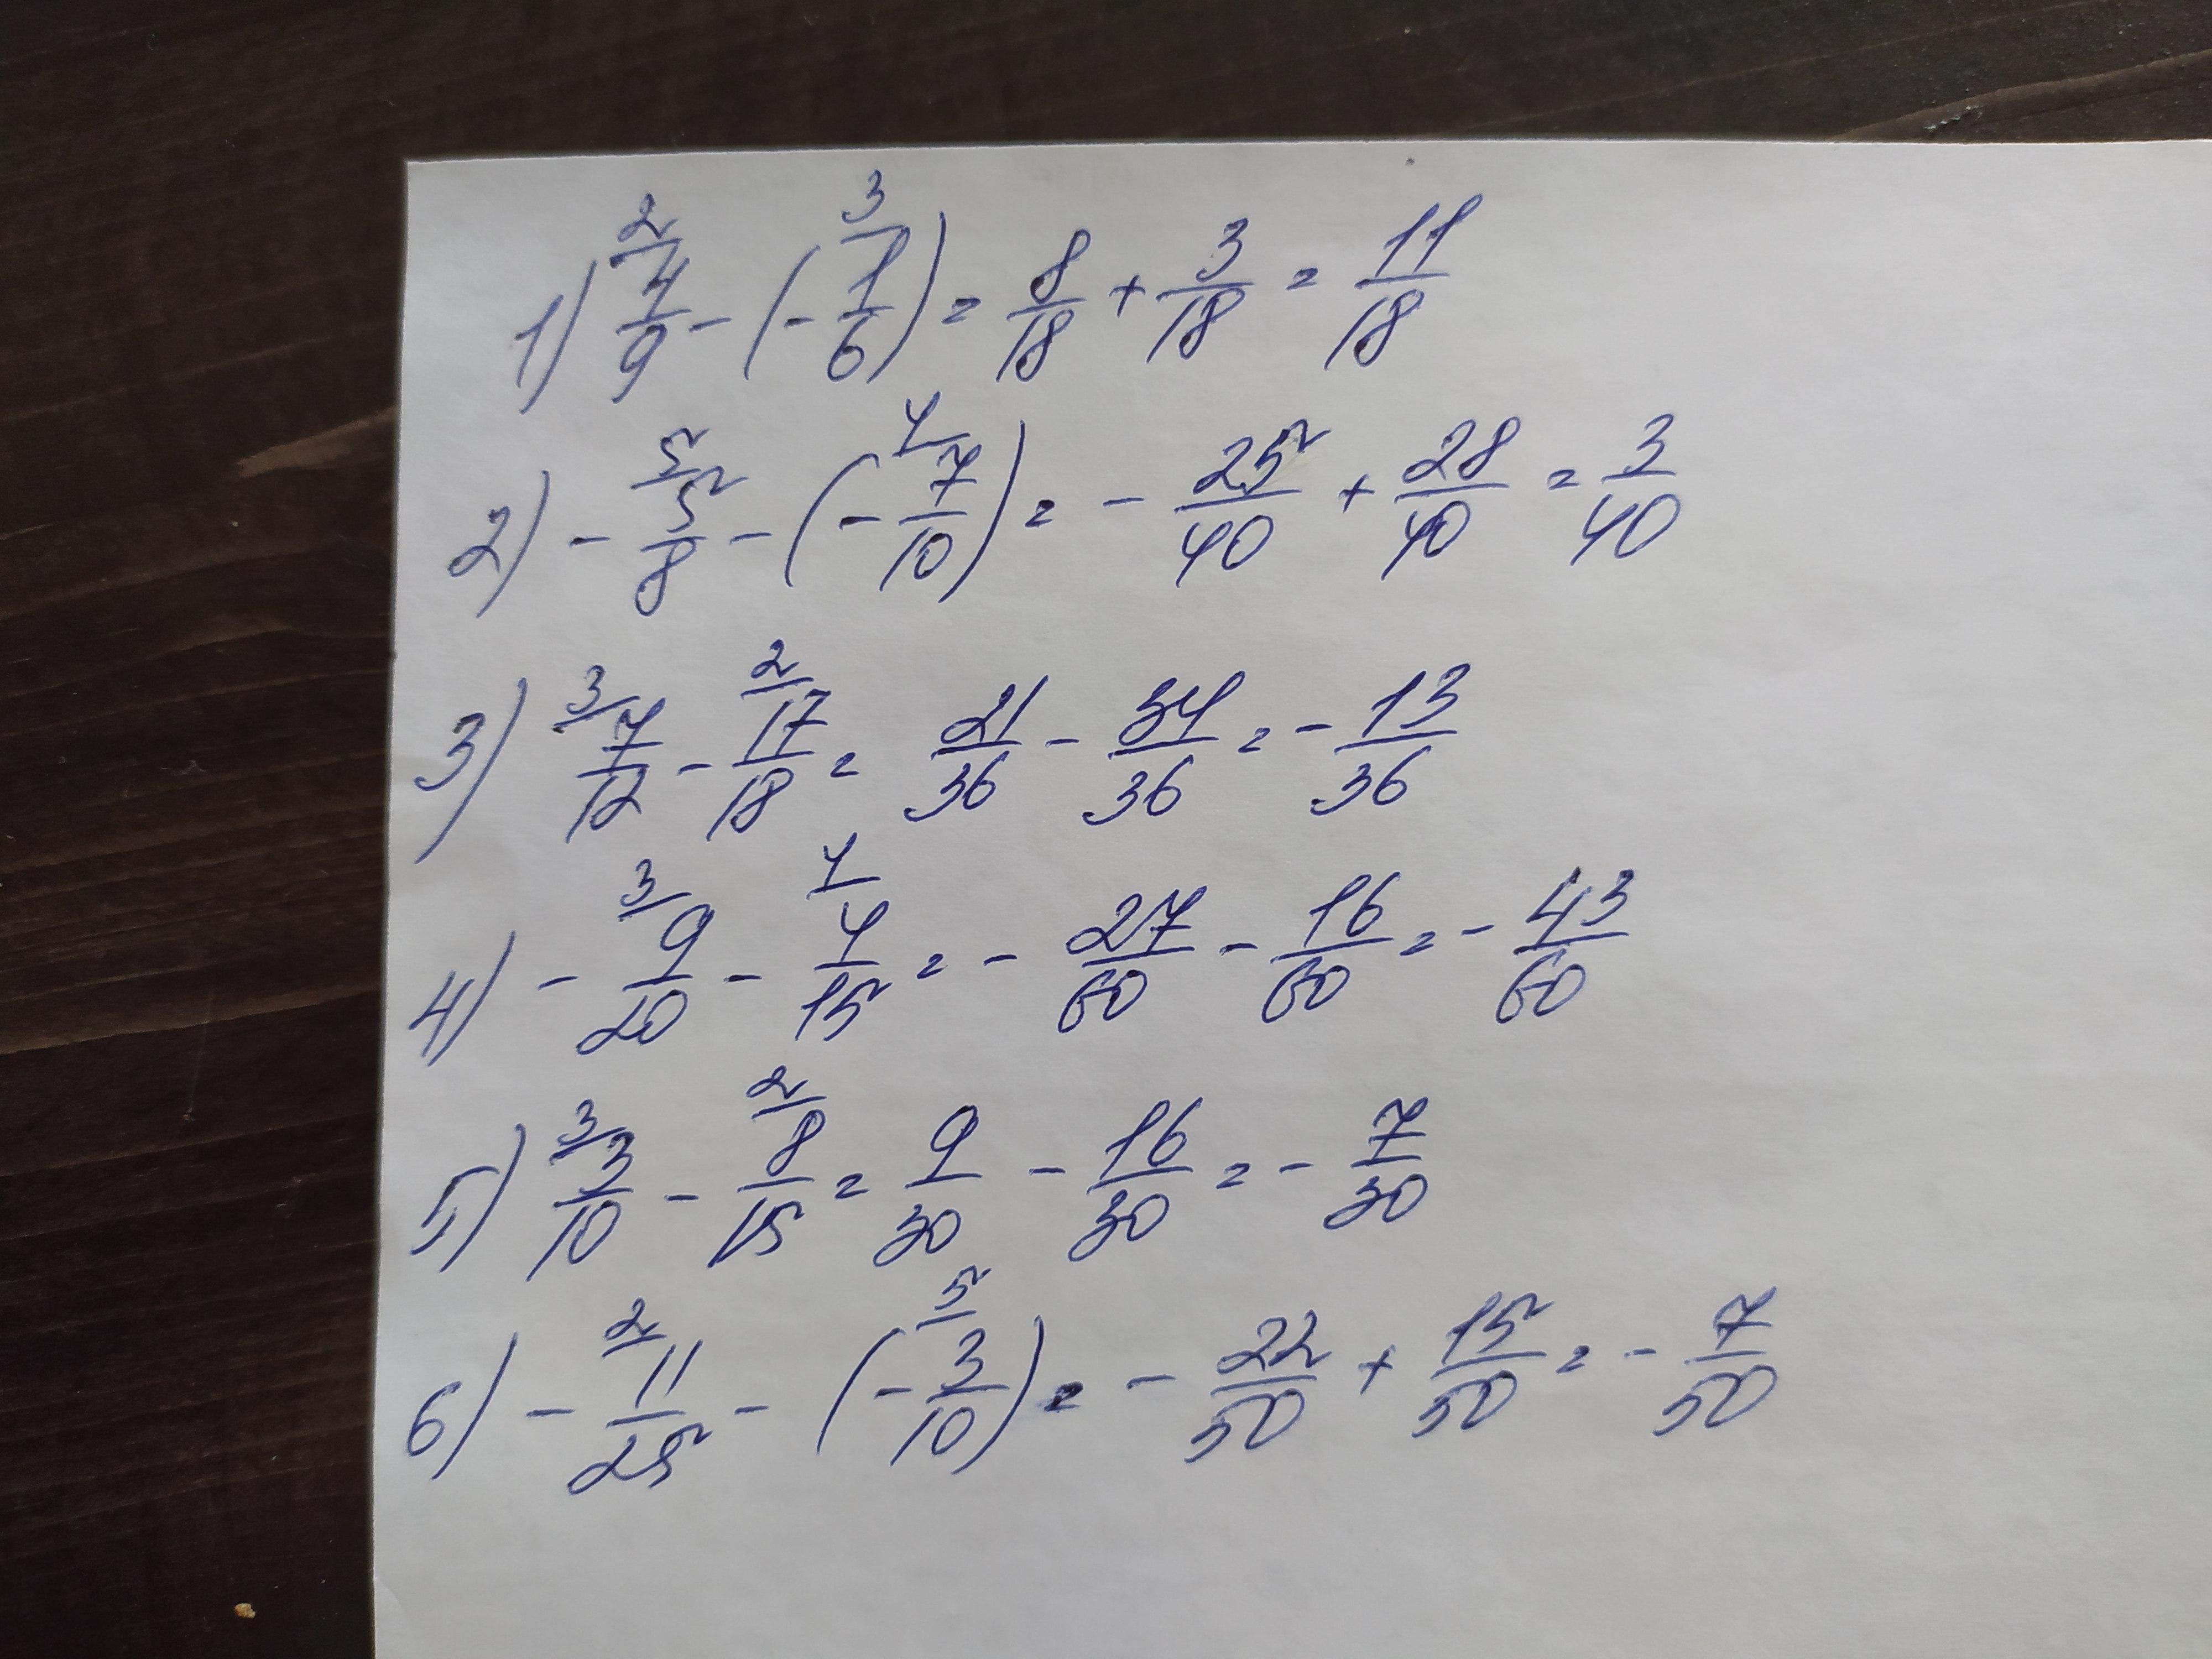 1) ²⁄4/9 - (- ³⁄1/6) = 8/18 + 3/18 = 11/18
2) - ⁵⁄5/8 - (- ⁴⁄7/10) = - 25/40 + 28/40 = 3/40
3) ³⁄7/12 - ²⁄17/18 = 21/36 - 34/36 = - 13/36
4) - ³⁄9/20 - ⁴⁄4/15 = - 27/60 - 16/60 = - 43/60
5) ³⁄3/10 - ²⁄8/15 = 9/30 - 16/30 = - 7/30
6) - ²⁄11/25 - (- ⁵⁄3/10) = - 22/50 + 15/50 = - 7/50